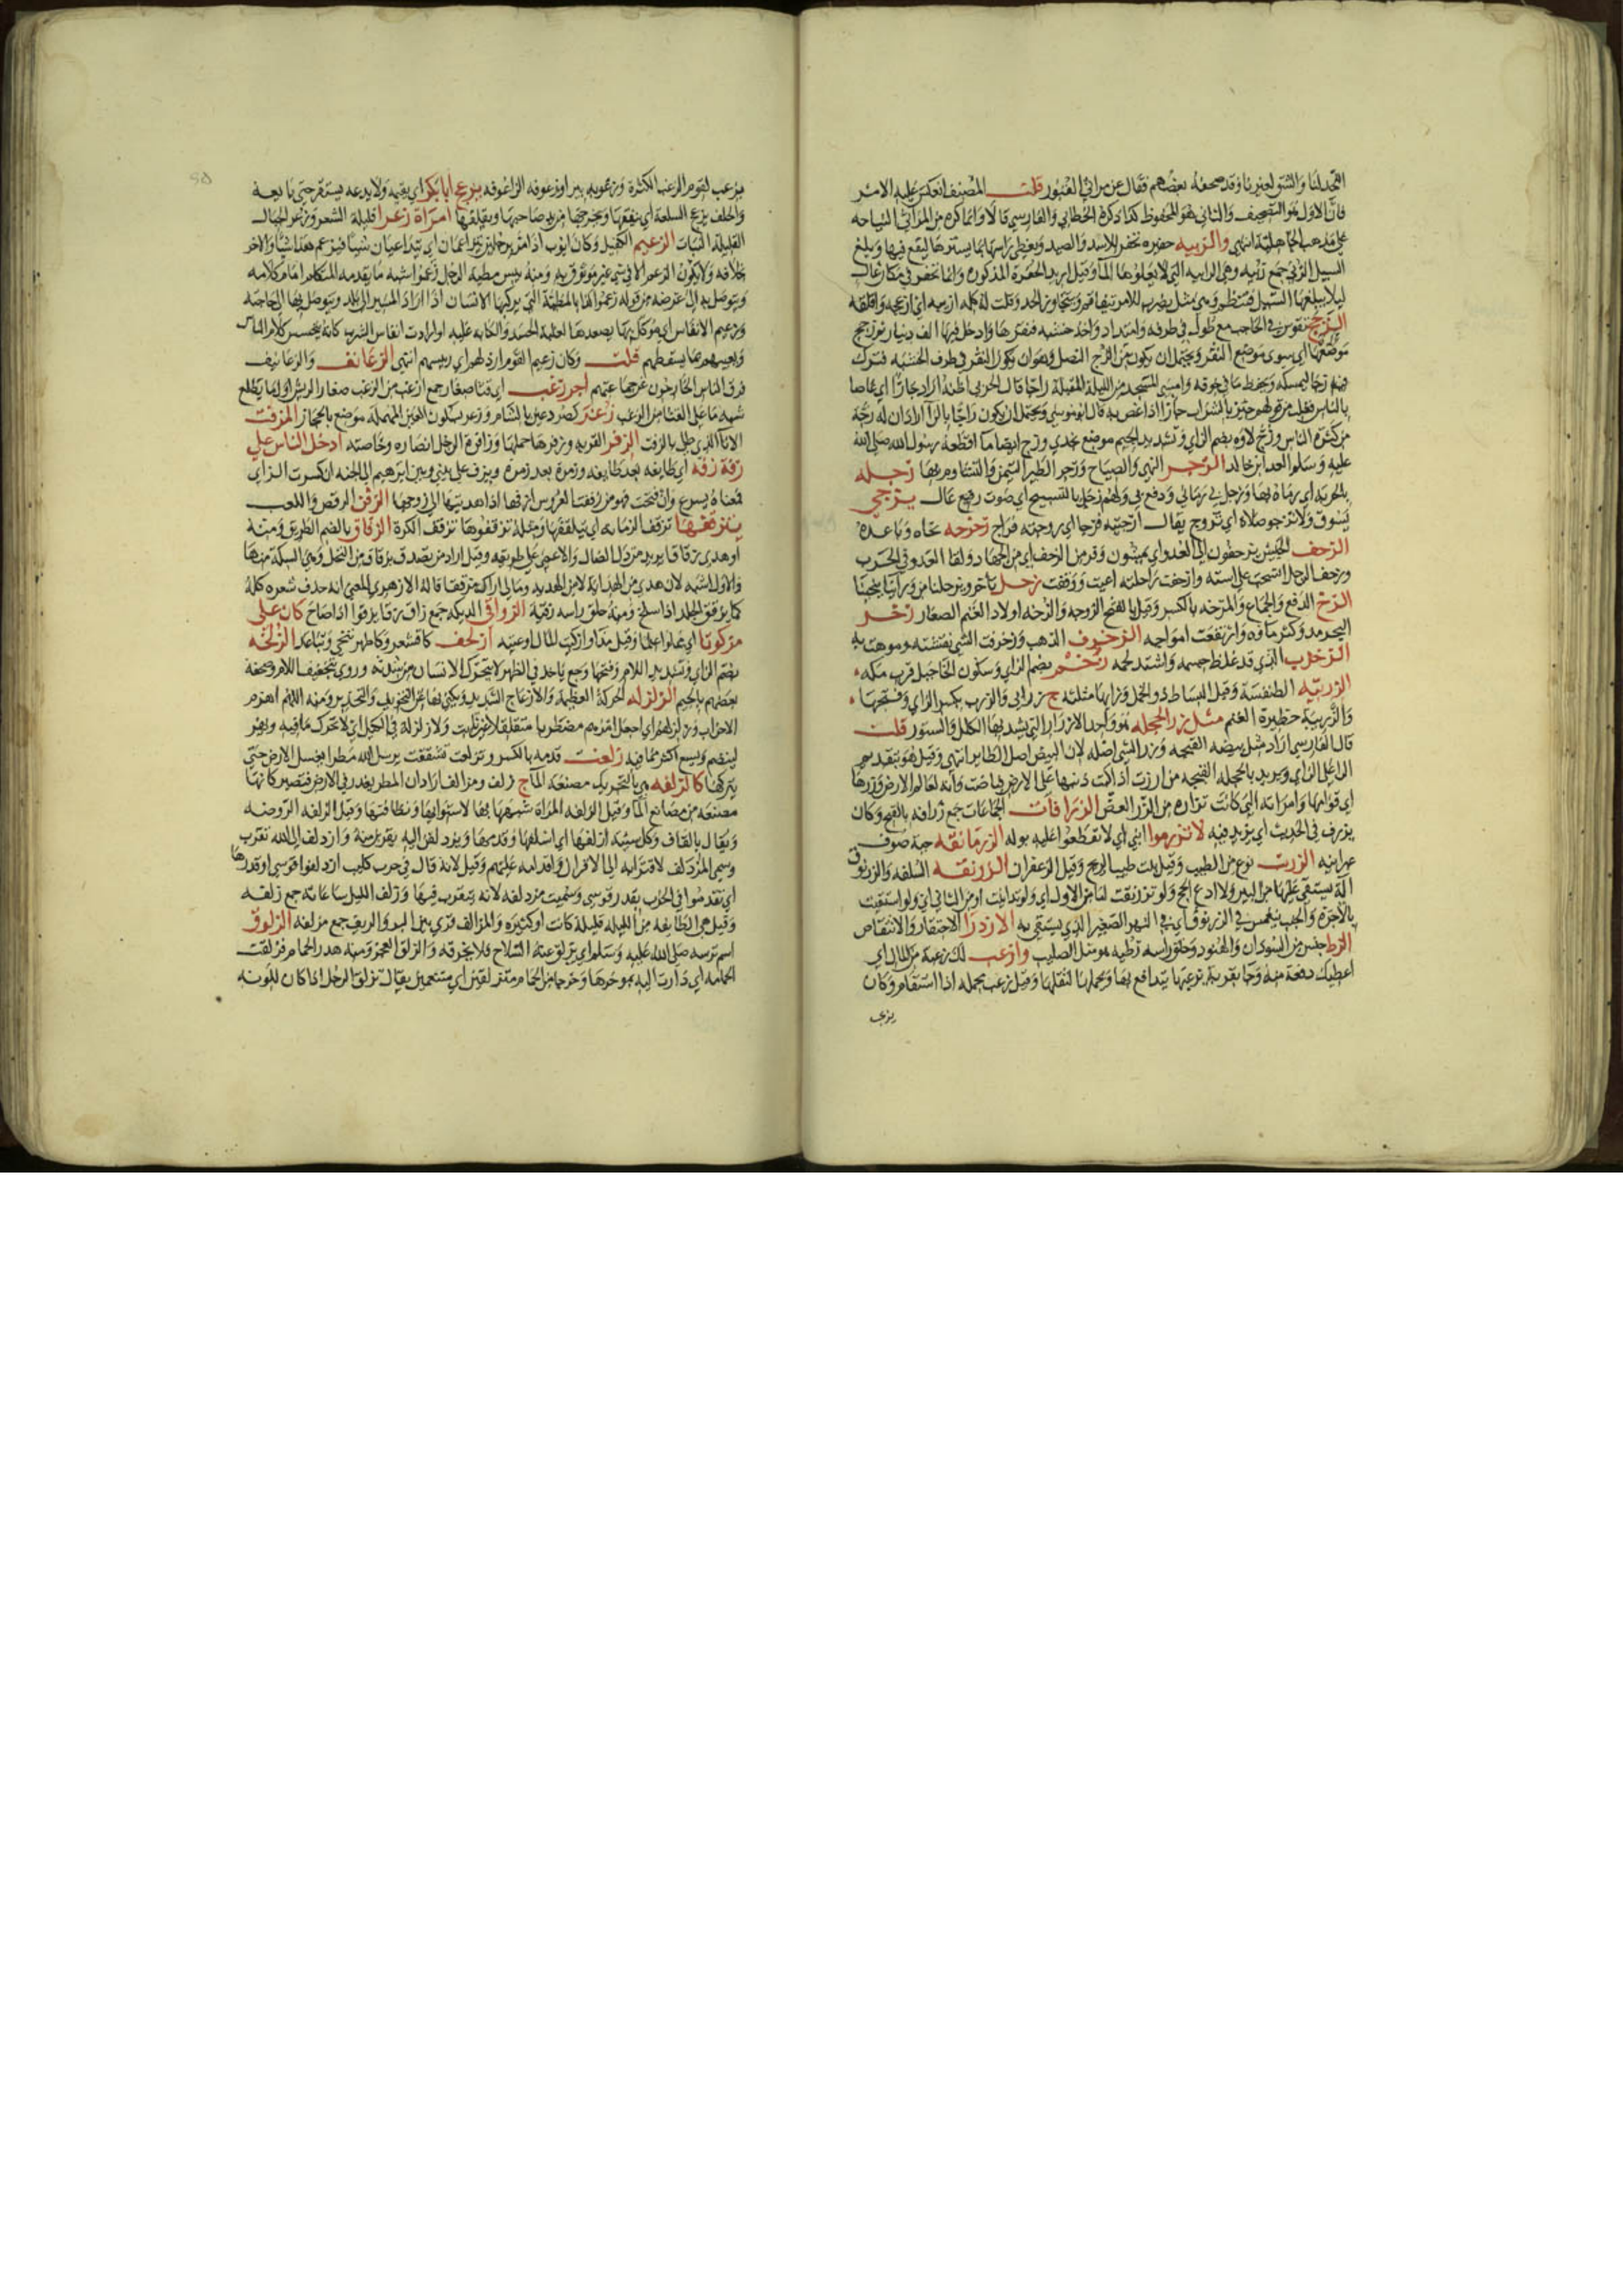 فان الاول هو التصحيف والثاني هو المحفوظ كذا ذكره الخطابي والفارسي قالا وانما كره من المراثي النياحة
على مذهب الجاهلية انتهى والزبيه حفيره تحفر للاسد والصيد ويغطى راسها بما يسترها ليقع فيها وبلغ
السيل الزبى جمع زبيه وهي الرابيه التي لا يعلوها الما وقيل اريد الحفرة المذكوره وانما تحفر في مكان عال
ليلا يبلغها السيل فتنطم وهي مثل يضرب للامر يتفاقم ويتجاوز الحد
الزجج تقوس في الحاجب مع طول في طرفه وامتداد واخذ خشبه فنقرها وادخل فيها الف دينار ثم زجج
موضعها اي سوى موضع النقر ويحتمل ان يكون من الزج النصل وهو ان يكون النقر في طرف الخشبه فترك
فيه زجا ليمسكه ويحفظ ما في جوفه وامسى المسجد من الليلة المقبلة زاجا قال الحربي اظنه اراد جازا اي غاصا
بالناس فقلب من قولهم جئز بالشراب جازا اذا غص به قال ابو موسى ويحتمل ان يكون راجا بالرا اراد ان له رجة
من كثرة الناس وزج لاوه بضم الزاي وتشديد الجيم موضع نجدي وزج ايضا ما اقطعه رسول الله صلى الله
عليه وسلم العدا بن خالد الزجر النهي والصياح وزجر الطير التيمن والتشاوم بها زجله
بالحربة اي رماه بها وزجل بي رماني ودفع بي ولهم زجل بالتسبيح اي صوت رفيع عال يزجي
يسوق ولا تزجو صلاة اي تروج يقال ازجيته فزجا اي روجته فراج زحزحه نحاه وباعده
الزحف الجيش يزحفون الى العدو اي يمشون وفر من الزحف اي من الجهاد ولقا العدو في الحرب
وزحف الرجل انسحب على استه وازحفت راحلته اعيت ووقفت زحل تاخر
الزخ الدفع والجماع والمزخه بالكسر وقيل بالفتح الزوجه والزخه اولاد الغنم الصغار زخر
البحر مد وكثر ماوه وارتفعت امواجه الزخرف الذهب وزخرفت الشي نقشته وموهت به
الزخزب الذي قد غلظ جسمه واشتد لحمه زخم بضم الزاي وسكون الخا جبل قرب مكه
الزربيه الطنفسة وقيل البساط ذو الخمل وزايها مثلثه ج زرابي والزرب بكسر الزاي وفتحها
والزريبة حظيرة الغنم مثل زر الحجله هو واحد الازرار التي يشد بها الكلل والستور قلت
قال الفارسي اراد مثل بيضه القبجه وزر الشي اصله لان البيض اصل الطاير انتهى وقيل هو بتقديم
الرا على الزاي ويريد بالحجله القبجه من ارزت اذا كبت ذنبها على الارض فباضت وانه لعالم الارض وزرها
اي قوامها وامراته التي كانت تزاره من الزر العض الزرافات الجماعات جمع زرافه بالفتح وكان
يزرف في الحديث اي يزيد فيه لا تزرموا ابني اي لا تقطعوا عليه بوله الزرمانقه جبة صوف
عبرانيه الزرنب نوع من الطيب وقيل نبت طيب الريح وقيل الزعفران الزرنقه السلفه والزرنوق
بالاجره والجنب يغمس في الزرنوق اي في النهر الصغير الذي يستقى به الازدرا الاحتقار والانتقاص
الزط جنس من السودان والهنود وحلق راسه زطيه هو مثل الصليب وازعب لك زعبة من المال اي
اعطيك دفعة منه وجا بقربة يزعبها يتدافع بها ويحملها لثقلها وقيل زعب بحمله اذا استقام وكان
يزعب
والحلف يزع السلعة
القليلة النبات الزعيم الكفيل وكان ايوب اذا مر برجلين يتزاعمان اي يتداعيان شيا فيزعم هذا شيا والاخر
خلافه ولا يكون الزعم الا في شي غير موثوق به ومنه بيس مطية الرجل زعموا شبه ما يقدمه المتكلم امام كلامه
ويتوصل به الى غرضه من قوله زعموا كذا بالمطية التي يركبها الانسان اذا اراد المسير الى بلد ويتوصل بها الى حاجته
وزعيم الانفاس اي موكل بها يصعدها لغلبة الحسد والكابه عليه او اراد انفاس الشرب كانه يتجسس كلام الناس
ويعيبهم بما يسقطهم قلت وكان زعيم القوم ارذلهم اي رييسهم انتهى الزعانف والزعانيف
فرق الناس الخارجون عن جماعتهم اجر زغب اي قثا صغار جمع ازغب من الزغب صغار الريش اول ما يطلع
شبه ما على القثا من الزغب زغر كصرد عين بالشام وزعر بسكون العين المهمله موضع بالحجاز المزفت
الانا الذي طلي بالزفت الزفر القربه وزفرها حملها وزافرة الرجل انصاره وخاصته ادخل الناس علي
زفة زفه اي طايفه بعد طايفه وزمرة بعد زمرة ويزف علي بيني وبين ابرهيم الى الجنه ان كسرت الزاي
فمعناه يسرع وان فتحت فهو من زففت العروس ازفها اذا اهديتها الى زوجها الزفن الرقص واللعب
يتزقفها تزقف الرمانه اي يتلقفها ومثله تزقفوها تزقف الكرة الزقاق بالضم الطريق ومنه
او هدى زقاقا يريد من دل الضال والاعمى على طريقه وقيل اراد من تصدق بزقاق من النخل وهي السكة منها
والاول اشبه لان هدى من الهداية لا من الهدية ومالي اراك مزققا قال الازهري المعنى انه حذف شعره كله
كما يزقق الجلد اذا سلخ ومنه حلق راسه زقية الزواقي الديكه جمع زاق زقا يزقوا اذا صاح كان علي
مزكوتا اي مملوا علما وقيل مذا او ازكيته المال اوعيته ازلحف كاقشعر وكاطهر تنحى وتباعد الزلخه
بضم الزاي وتشديد اللام وفتحها وجع ياخذ في الظهر لا يتحرك الانسان من شدته وروي بتخفيف اللام وصحفه
بعضهم بالجيم الزلزله الحركة العظيمة والازعاج الشديد ويكنى بها عن التخويف والتحذير ومنه اللهم اهزم
الاحزاب وزلزلهم اي اجعل امرهم مضطربا متقلقلا غير ثابت ولا زلزلة في الكيل اي لا يحرك ما فيه ويهز
لينضم ويسع اكثر مما فيه زلعت قدمه بالكسر وتزلعت تشققت يرسل الله مطرا فيغسل الارض حتى
يتركها كالزلفه هي بالتحريك مصنعة الما ج زلف ومزالف اراد ان المطر يغدر في الارض فتصير كانها
مصنعه من مصانع الما وقيل الزلفه المراة شبهها بها لاستوائها ونظافتها وقيل الزلفه الروضه
ويقال بالقاف وكل سيئة ازلفها اي اسلفها وقدمها ويزدلفن اليه يقربن منه وازدلف الى الله تقرب
وسمي المزدلف لاقترابه الى الاقران واقدامه عليهم وقيل لانه قال في حرب كليب ازدلفوا قوسي او قدرها
اي تقدموا في الحرب بقدر قوسي وسميت مزدلفه لانه يتقرب فيها وزلف الليل ساعاته جمع زلفه
وقيل هي الطايفه من الليله قليلة كانت او كثيره والمزالف قرى بين البر والريف جمع مزلفه الزلوق
اسم ترسه صلى الله عليه وسلم اي يزلق عنه السلاح فلا يخرقه والزلق العجز ومنه هدر الحمام فزلقت
الحمامه اي دارت اليه بموخرها وخرجا من الحمام متزلقين اي متنعمين يقال تزلق الرجل اذا كان للونه